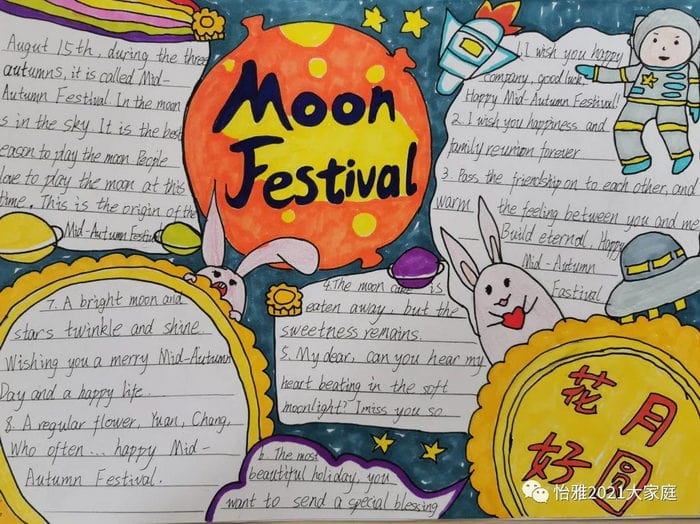 Augut 15th, during the three
autumns, it is called Mid-
Autumn Festival. In the moon
is in the sky. It is the best
eason to play the moon. People
love to play the moon at this
time. This is the origin of the
Mid-Autumn Festival
Moon
Festival
1. I wish you happy
company, good luck,
Happy Mid-Autumn Festival!
2. I wish you happiness and
family reunion forever
3. Pass the friendship on to each other, and
warm the feeling between you and me
Build eternal, Happy
Mid-Autumn
Fastival
4. The moon cake is
eaten away, but the
sweetness remains.
5. My dear, can you hear my
heart beating in the soft
moonlight? I miss you so
6. The most
beautiful holiday, you
want to send a special blessing
7. A bright moon and
stars twinkle and shine
Wishing you a merry Mid-Autumn
Day and a happy life.
8. A regular flower, Yuan, Chang,
Who often... happy Mid-
Autumn Festival.
花月
好圆
怡雅2021大家庭